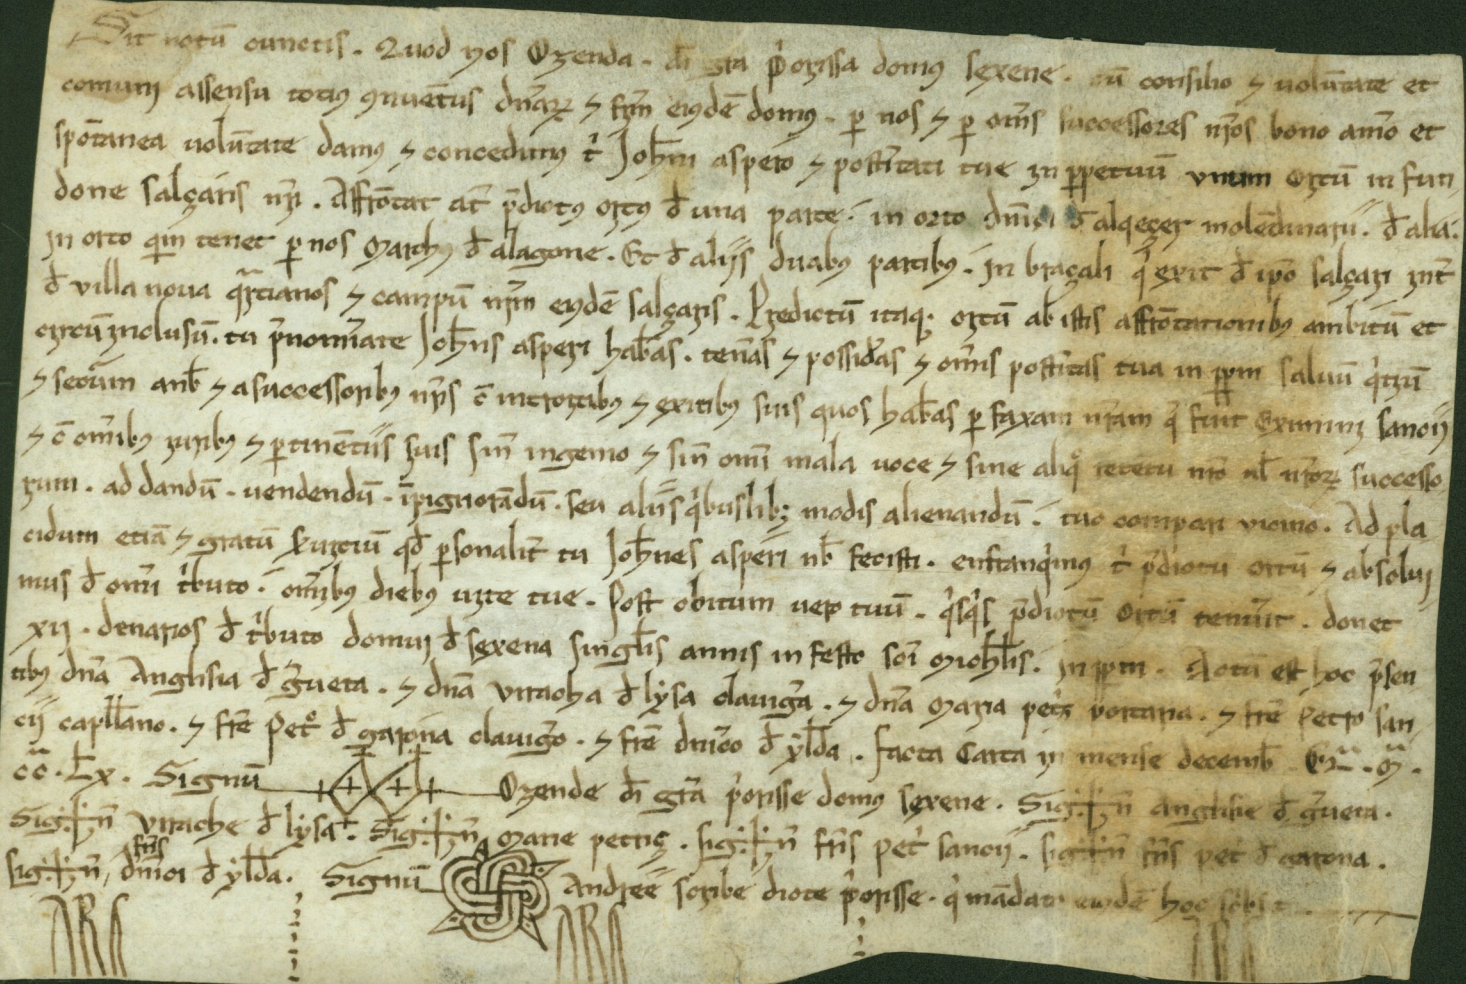 Sit notū cunctis . Quod nos Ozenda . dī gr̄a p'orissa domus sexene . cū consilio ⁊ volūtate et
comuni assensu totius ꝯuētus dn̄aꝝ ⁊ fr̄m eiusdē domus . ꝑ nos ⁊ ꝑ om̄s successores nr̄os bono animo et
spōtanea volūtate damus ⁊ concedimus t' Joh̄ni aspero ⁊ post'itati tue in ꝑpetuū unum ortū in fun
done salçaris nr̄i . Affrōtat aūt p̄dictus ortus d̄ una parte in orto dn̄ici d̄ alqeçer molēdinarii . d̄ alia
in orto qm̄ tenet ꝑ nos Marchus d̄ alagone . Et d̄ aliis duabus partibus . in braçali q̄ exit d̄ ip̄o salçari int̄
d̄ villa nova q̄rtianos ⁊ campū nr̄m eiusdē salçaris . Predictū itaq; ortū ab istis affrōtationibus ambitū et
circūinclusū . tu p̄nominate Joh̄ns asperi hab̄as . ten̄as ⁊ possid̄as ⁊ om̄is post'itas tua in ꝑpm saluū q'tiū
⁊ securum a nob̄ ⁊ a successoribus nr̄is c̄ introitibus ⁊ exitibus suis quos hab̄as ꝑ faxam nr̄am q̄ fuit Eximini sancii
⁊ c̄ om̄ibus iuribus ⁊ ꝑtinētiis suis sin̄ ingenio ⁊ sin̄ omī mala voce ⁊ sine aliq° retētu nr̄o ul̄ nr̄oꝝ successo
rum . ad dandū . uendendū . īpignorādū . seu aliis q'buslib; modis alienandū tuo compari vicino . Ad pla
citum etiā ⁊ gratū seruitiū qd̄ ꝑsonalit̄ tu Joh̄nes asperi nob̄ fecisti . enfranq'mus t' p̄dictū ortū ⁊ absolui
mus d̄ omī t'buto om̄ibus diebus uite tue . Post obitum uero tuū . q'sq's p̄dictū ortū tenu'it . donet
xii . denarios d̄ t'buto domui d̄ sexena singulis annis in festo sc̄i Mich̄lis . in ꝑpm . Actū est hoc p̄sen
tibus dn̄a Anglisia d̄ g'ueta . ⁊ dn̄a Viracha d̄ lysa clauig̃a . ⁊ dn̄a Maria petri portaria . ⁊ fr̄e Petro san
cii capll̄ano . ⁊ fr̄e Pet° d̄ garona clauig̃o . ⁊ fr̄e dn̄ico d̄ yl̄da . facta Carta in mense decemb̄ . Er̄a . M̄ .
cc̄ . Lx . Signū Ozende dī gr̄a p'orisse domus sexene . Sig+n̄ Anglisie d̄ g'ueta .
Sig+n̄ Virache d̄ lysa . Sig+n̄ Marie petriç . Sig+n̄ fr̄is pet' sancii . sig+n̄ fr̄is pet' d̄ garona .
sig+n̄ fr̄is dn̄ici d̄ yl̄da . Signū Andree scribe dicte p'orisse . q' mādato eiusdē hoc sc'bsit